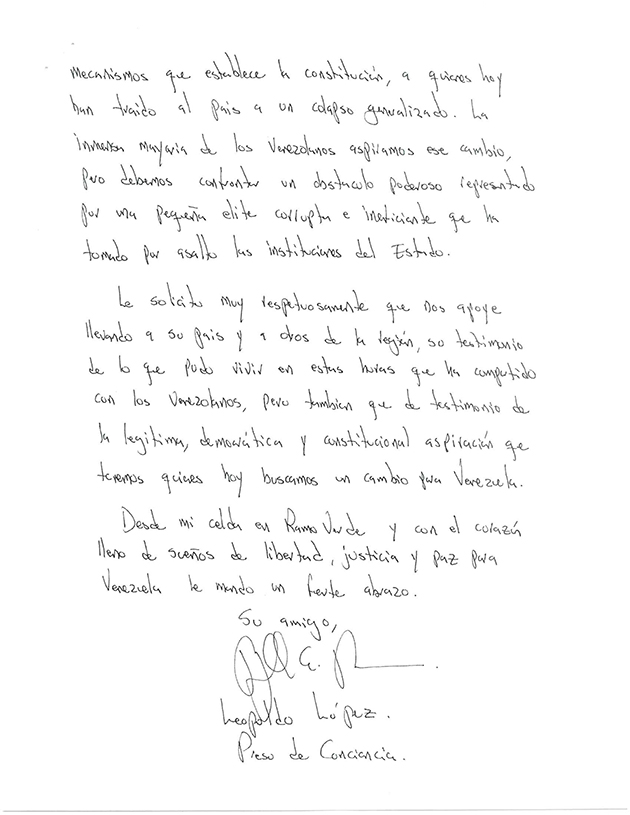 mecanismos que establece la constitución, a quienes hoy
han traido al pais a un colapso generalizado. La
inmensa mayaria de los Venezolanos aspiramos ese cambio,
pero debemos confrontar un obstaculo poderoso representado
por una pequeña elite corrupta e ineficiante que ha
tomado por asalto las instituciones del Estado.
Le solicito muy respetuosamente que nos apoye
llevando a su pais y a otros de la región, su testimonio
de lo que pudo vivir en estas horas que ha compartido
con los Venezolanos, pero tambien que de testimonio de
la legitima, democrática y constitucional aspiración que
tenemos quienes hoy buscamos un cambio para Venezuela.
Desde mi celda en Ramo Verde y con el corazón
lleno de sueños de libertad, justicia y paz para
Venezuela le mando un fuerte abrazo.
Su amigo,
Leopoldo López.
Preso de Conciencia.